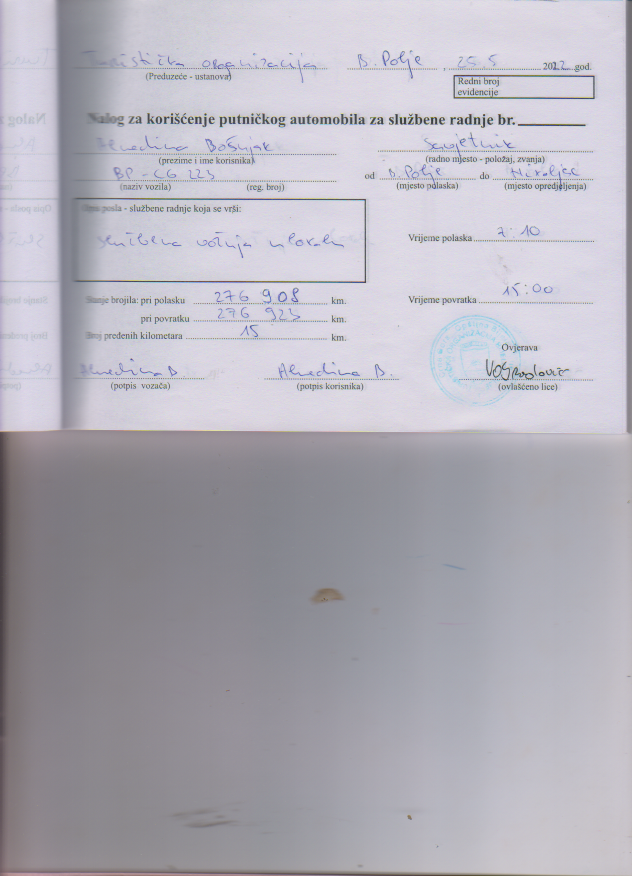 Turistička organizacija B. Polje, 25.5 2022 god.
(Preduzeće - ustanova)
Redni broj
evidencije
Nalog za korišćenje putničkog automobila za službene radnje br.
Almedina Bošnjak Savjetnik
(prezime i ime korisnika) (radno mjesto - položaj, zvanja)
BP-CG 223 od B. Polje do Nikoljac
(naziv vozila) (reg. broj) (mjesto polaska) (mjesto opredjeljenja)
Opis posla - službene radnje koja se vrši:
službena vožnja u lokalu
Vrijeme polaska 7:10
Stanje brojila: pri polasku 276 908 km.
Vrijeme povratka 15:00
pri povratku 276 923 km.
Broj pređenih kilometara 15 km.
Ovjerava
Almedina B Almedina B.
(potpis vozača) (potpis korisnika) (ovlašćeno lice)